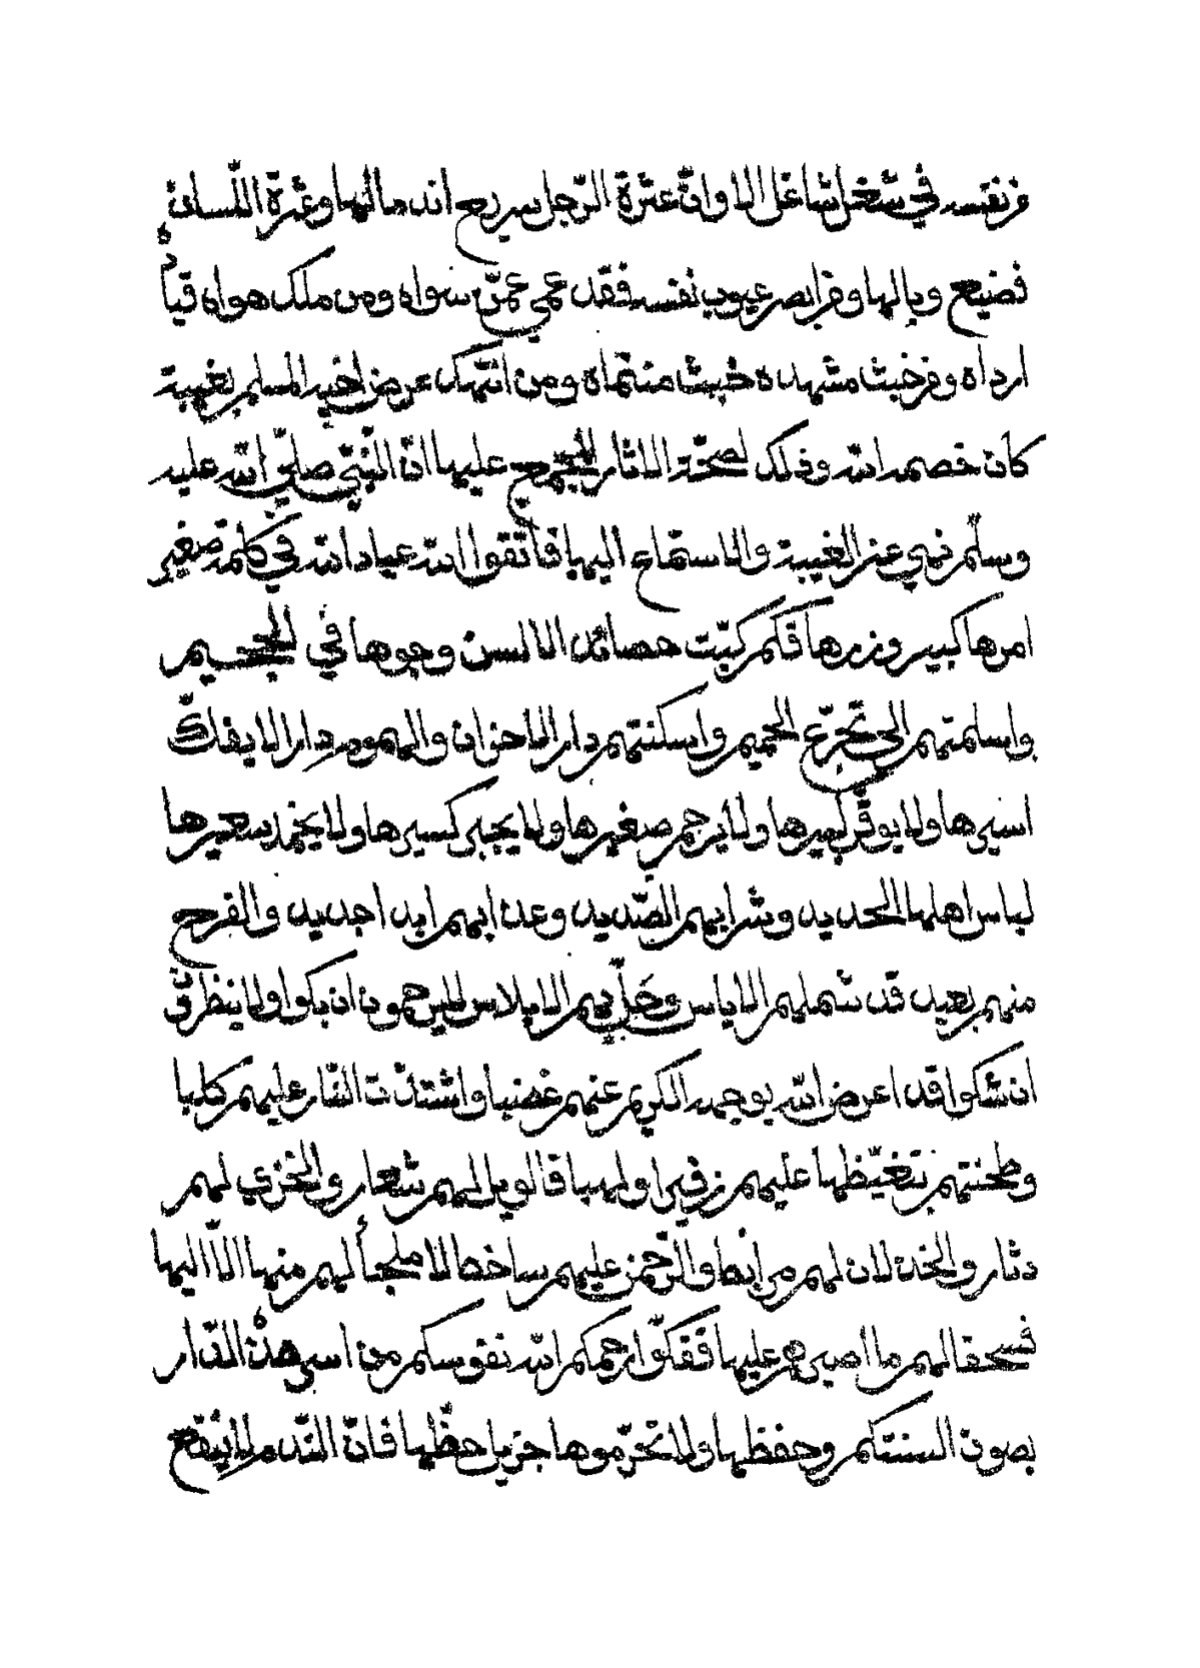 من نفسه في شغل شاغل الا وان عثرة الرّجل سريع اندمالها وعثرة اللّسان
فضيع وبالها ومن ابصر عيوب نفسه فقد عمي عمّن سواه ومن ملك هواه قياد
ارداه ومن خبث مشهده خبث منتماه ومن انتهك عرض اخيه المسلم بغيبة
كان خصمه الله وذلك لصحّة الاثار المجمع عليها انّ النّبيّ صلّى الله عليه
وسلّم نهي عن الغيبة والاستماع اليها فاتقوا الله عباد الله في كلمة صغير
امرها كبير وزرها فكم كبّت حصائد الالسن وجوها في الجحيم
واسلمتهم الي تجرّع الحميم واسكنتهم دار الاحزان والهموم دار لا يفكّ
اسيرها ولا يوقّر كبيرها ولا يرحم صغيرها ولا يجبر كسيرها ولا يخمد سعيرها
لباس اهلها الحديد وشرابهم الصّديد وعذابهم ابدا جديد والفرح
منهم بعيد قد شملهم الاياس وحلّ بهم الابلاس ليس يرحمون ان بكوا ولا ينظر
ان شكوا قد اعرض الله بوجهه الكريم عنهم غضبا واشتدّت النّار عليهم كلبا
وطحنتهم بتغيّظها عليهم زفيرا ولهبا فالويل لهم شعار والخزي لهم
دثار والخذلان لهم مرابط والرّحمن عليهم ساخط لا ملجأ لهم منها الّا اليها
فسحقا لهم ما اصبرهم عليها ففكّوا رحمكم الله نفوسكم من اسر هذه الدّار
بصون السنتكم وحفظها ولا تحرّموها جزيل حظّها فانّ النّدم لا ينفع